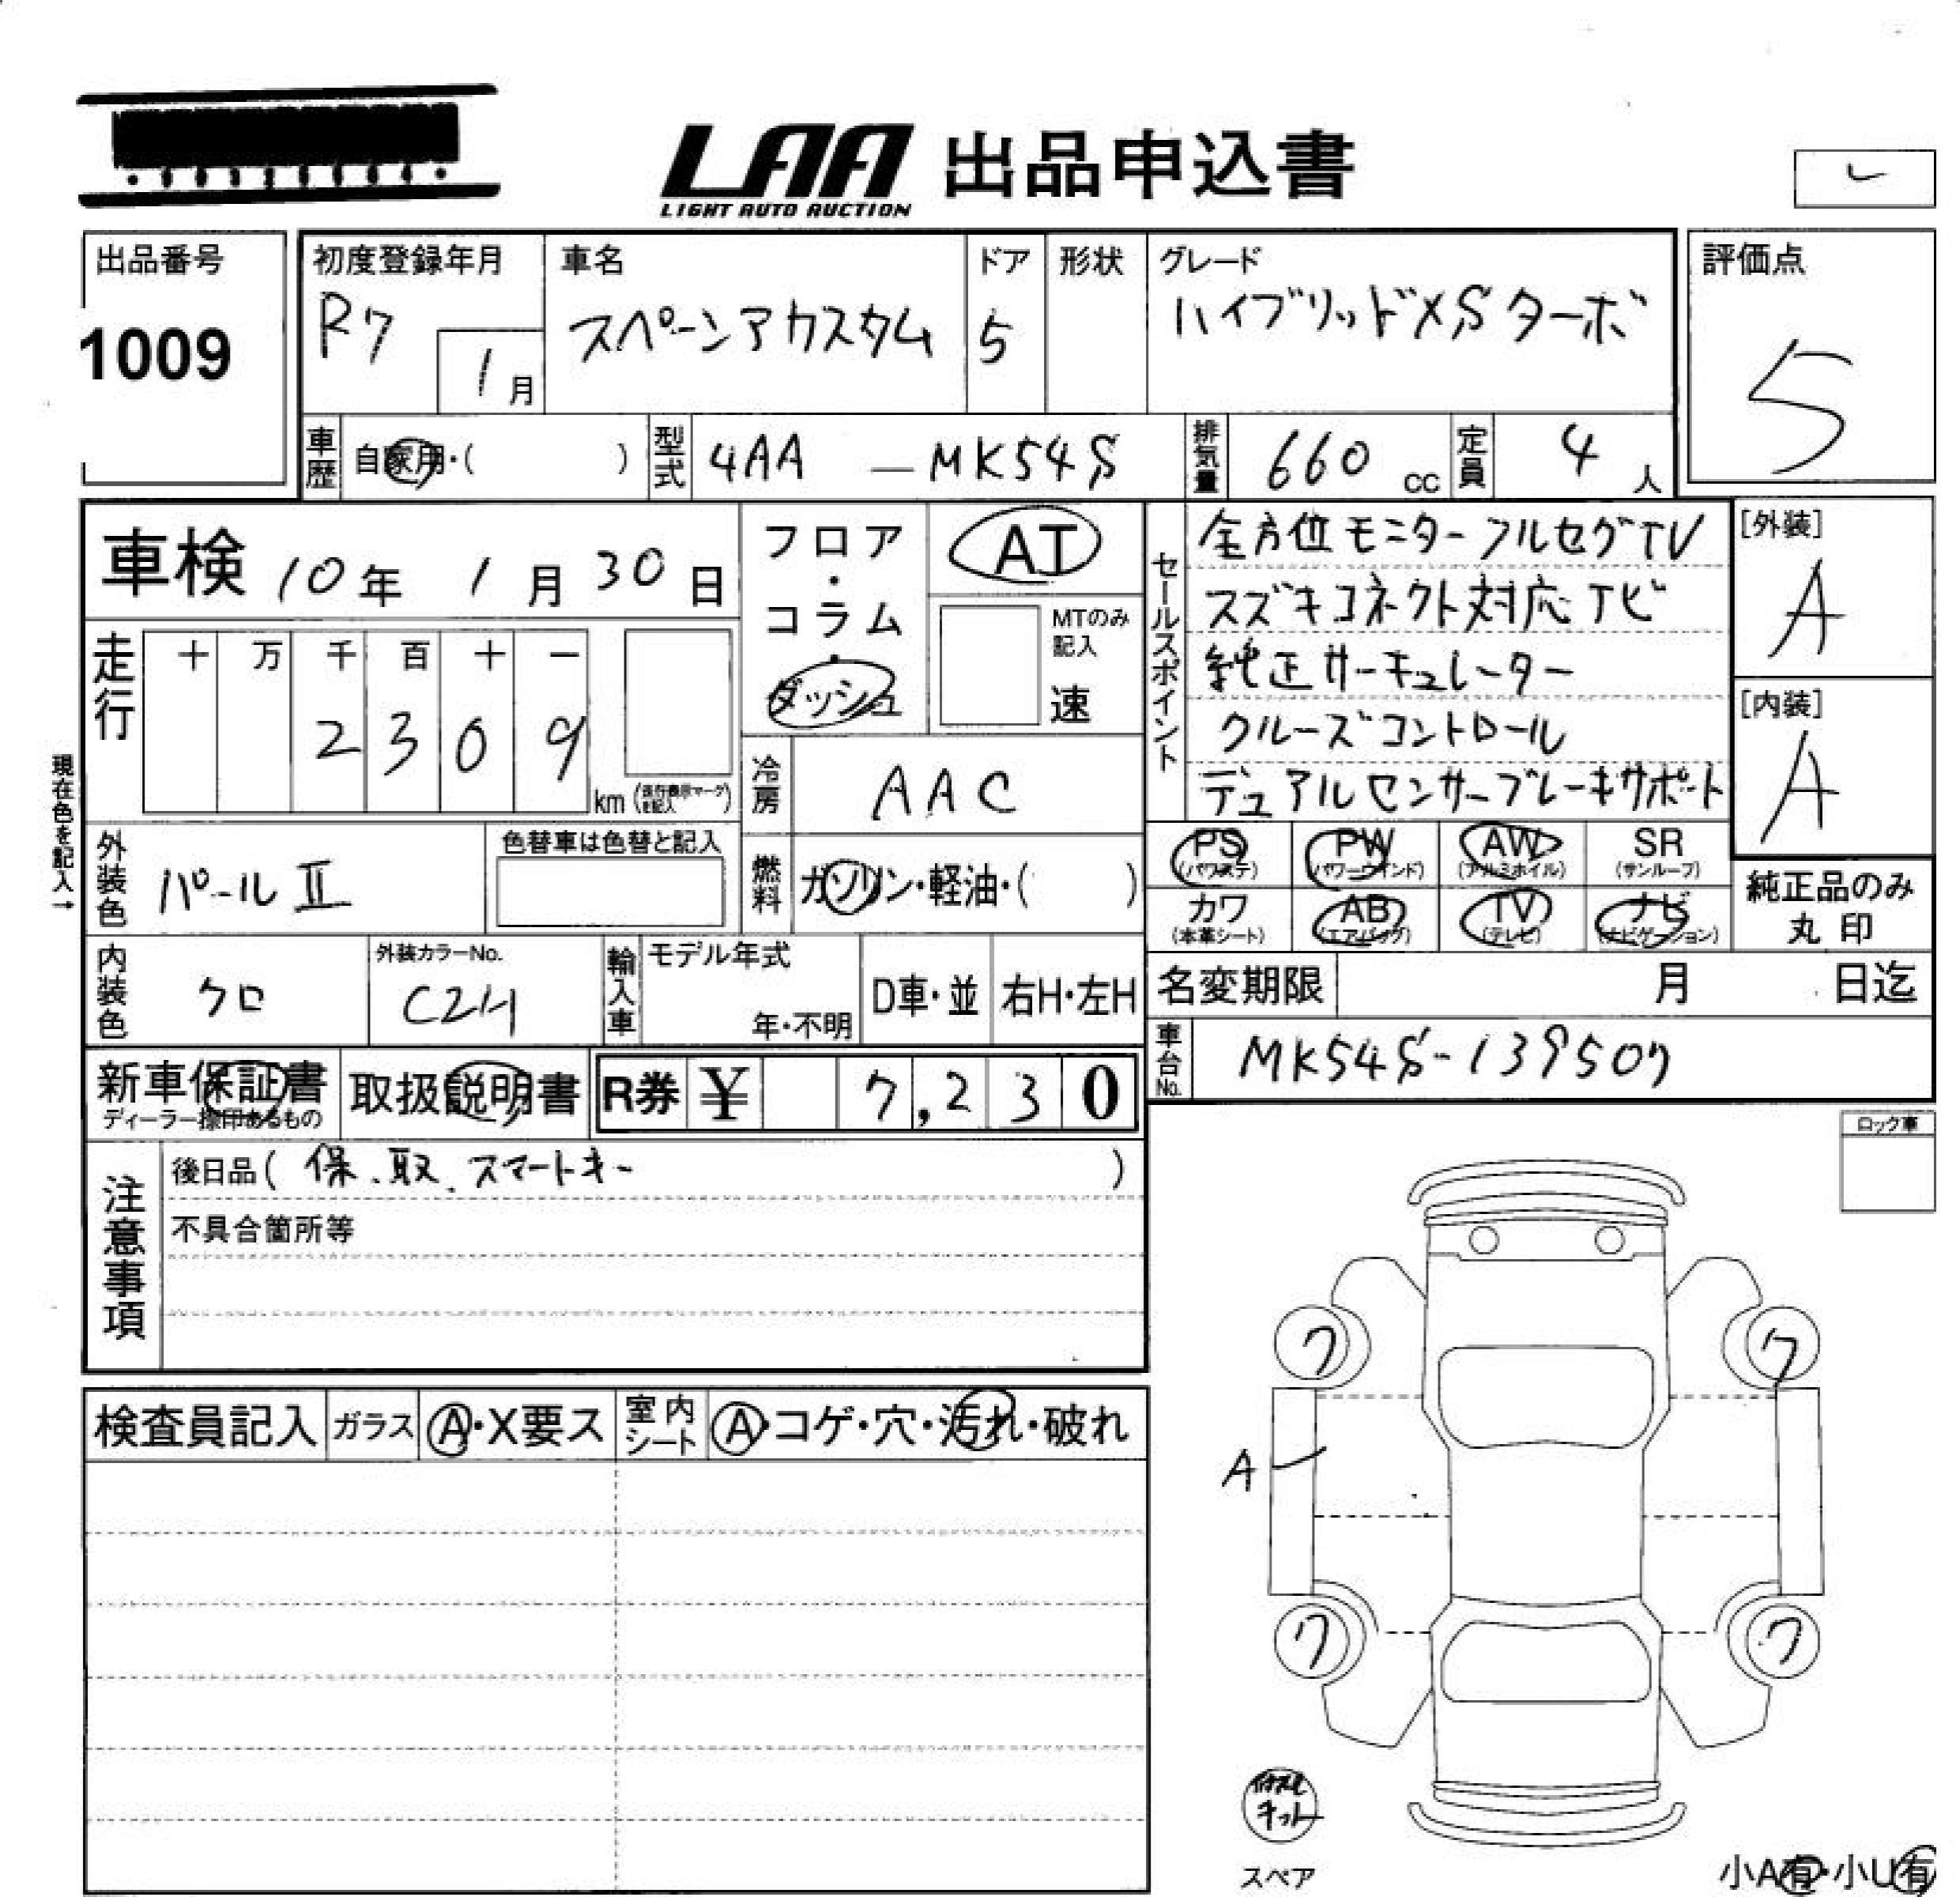 LAA 出品申込書
LIGHT AUTO AUCTION
レ
出品番号
1009
初度登録年月
R7
1月
車名
スペーシアカスタム
ドア
5
形状
グレード
ハイブリッドXSターボ
評価点
5
車歴
自家用・( )
型式
4AA - MK54S
排気量
660 cc
定員
4人
車検 10年 1月 30日
走行
十 万 千 百 十 一
2 3 0 9
km (走行表示マークを記入)
現在色を記入→
フロア・コラム・ダッシュ
AT
MTのみ記入
速
冷房
AAC
セールスポイント
全方位モニター フルセグTV
スズキコネクト対応ナビ
純正サーキュレーター
クルーズコントロール
デュアルセンサーブレーキサポート
[外装]
A
[内装]
A
外装色
パールⅡ
色替車は色替と記入
燃料
ガソリン・軽油・( )
PS (パワステ)
PW (パワーウインド)
AW (アルミホイル)
SR (サンルーフ)
カワ (本革シート)
AB (エアバッグ)
TV (テレビ)
ナビ (ナビゲーション)
純正品のみ
丸印
内装色
クロ
外装カラーNo.
輸入車
モデル年式
年・不明
D車・並
右H・左H
名変期限 月 日迄
車台No.
MK54S-139507
新車保証書
ディーラー捺印あるもの
取扱説明書
R券 ¥ 7,230
注意事項
後日品( 保、取、スマートキー )
不具合箇所等
ロック車
検査員記入
ガラス
A・X要ス
室内シート
A・コゲ・穴・汚れ・破れ
ク
ク
A
ク
ク
キット
スペア
小A有・小U有